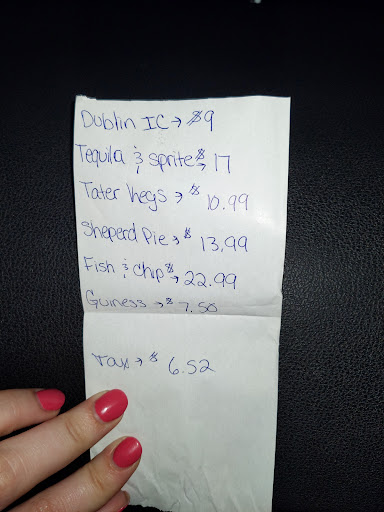 Dublin IC → $9
Tequila & Sprite $ → 17
Tater Kegs → $ 10.99
Sheperd Pie → $ 13,99
Fish & Chip $ → 22.99
Guiness → $ 7.50
Tax → $ 6.52